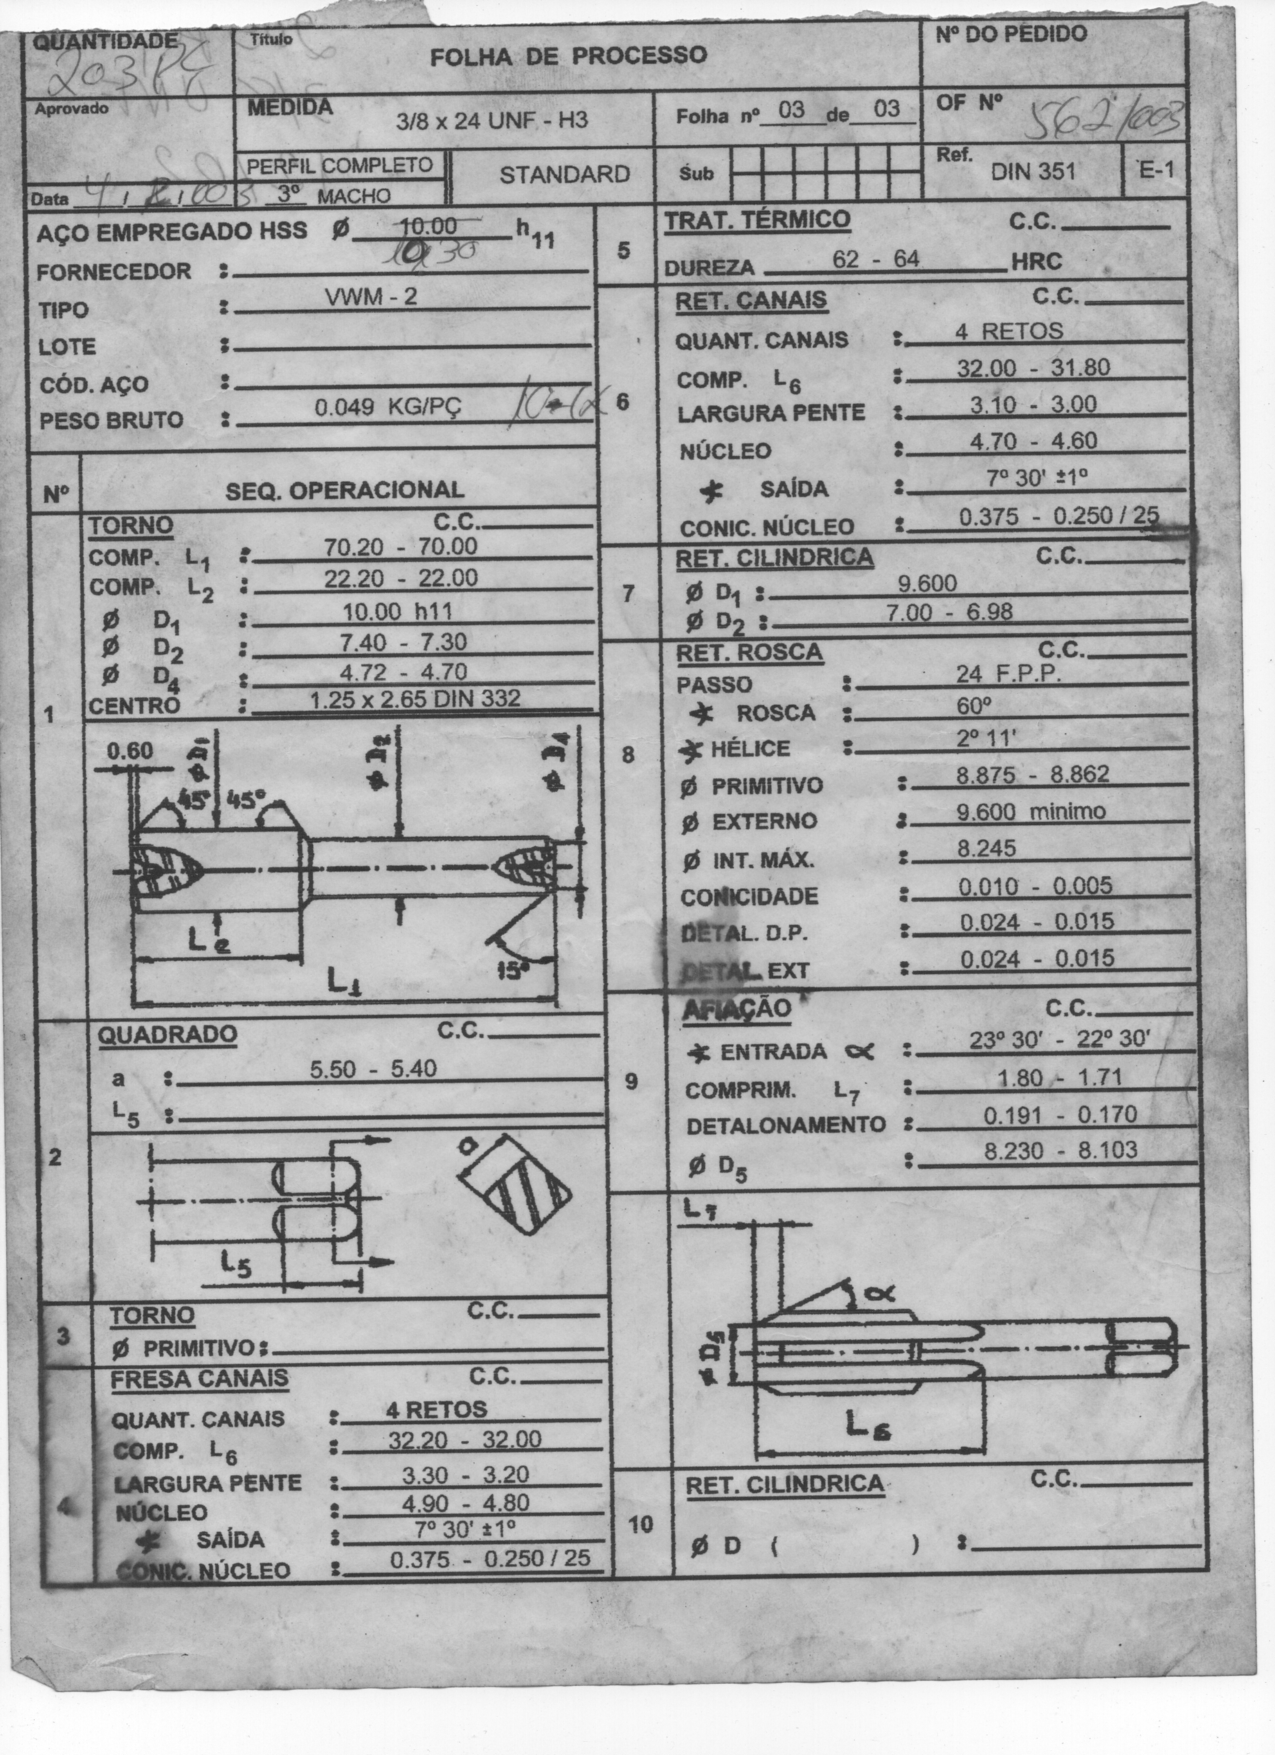 QUANTIDADE
203 PÇ
Título
FOLHA DE PROCESSO
Nº DO PEDIDO
Aprovado
MEDIDA
3/8 x 24 UNF - H3
Folha nº 03 de 03
OF Nº
562/003
PERFIL COMPLETO
STANDARD
Sub
Ref.
DIN 351
E-1
Data
3º MACHO
AÇO EMPREGADO HSS Ø 10.00 h11
10,30
FORNECEDOR :
TIPO : VWM - 2
LOTE :
CÓD. AÇO :
PESO BRUTO : 0.049 KG/PÇ
Nº SEQ. OPERACIONAL
1
TORNO C.C.
COMP. L1 : 70.20 - 70.00
COMP. L2 : 22.20 - 22.00
Ø D1 : 10.00 h11
Ø D2 : 7.40 - 7.30
Ø D4 : 4.72 - 4.70
CENTRO : 1.25 x 2.65 DIN 332
0.60
45º
45º
Ø D1
Ø D2
Ø D4
L2
L1
15º
2
QUADRADO C.C.
a : 5.50 - 5.40
L5 :
a
L5
3
TORNO C.C.
Ø PRIMITIVO :
4
FRESA CANAIS C.C.
QUANT. CANAIS : 4 RETOS
COMP. L6 : 32.20 - 32.00
LARGURA PENTE : 3.30 - 3.20
NÚCLEO : 4.90 - 4.80
SAÍDA : 7º 30' ±1º
CONIC. NÚCLEO : 0.375 - 0.250 / 25
5
TRAT. TÉRMICO C.C.
DUREZA 62 - 64 HRC
6
RET. CANAIS C.C.
QUANT. CANAIS : 4 RETOS
COMP. L6 : 32.00 - 31.80
LARGURA PENTE : 3.10 - 3.00
NÚCLEO : 4.70 - 4.60
SAÍDA : 7º 30' ±1º
CONIC. NÚCLEO : 0.375 - 0.250 / 25
7
RET. CILINDRICA C.C.
Ø D1 : 9.600
Ø D2 : 7.00 - 6.98
8
RET. ROSCA C.C.
PASSO : 24 F.P.P.
ROSCA : 60º
HÉLICE : 2º 11'
Ø PRIMITIVO : 8.875 - 8.862
Ø EXTERNO : 9.600 minimo
Ø INT. MÁX. : 8.245
CONICIDADE : 0.010 - 0.005
DETAL. D.P. : 0.024 - 0.015
DETAL. EXT : 0.024 - 0.015
9
AFIAÇÃO C.C.
ENTRADA α : 23º 30' - 22º 30'
COMPRIM. L7 : 1.80 - 1.71
DETALONAMENTO : 0.191 - 0.170
Ø D5 : 8.230 - 8.103
L7
α
Ø D5
L6
10
RET. CILINDRICA C.C.
Ø D ( ) :